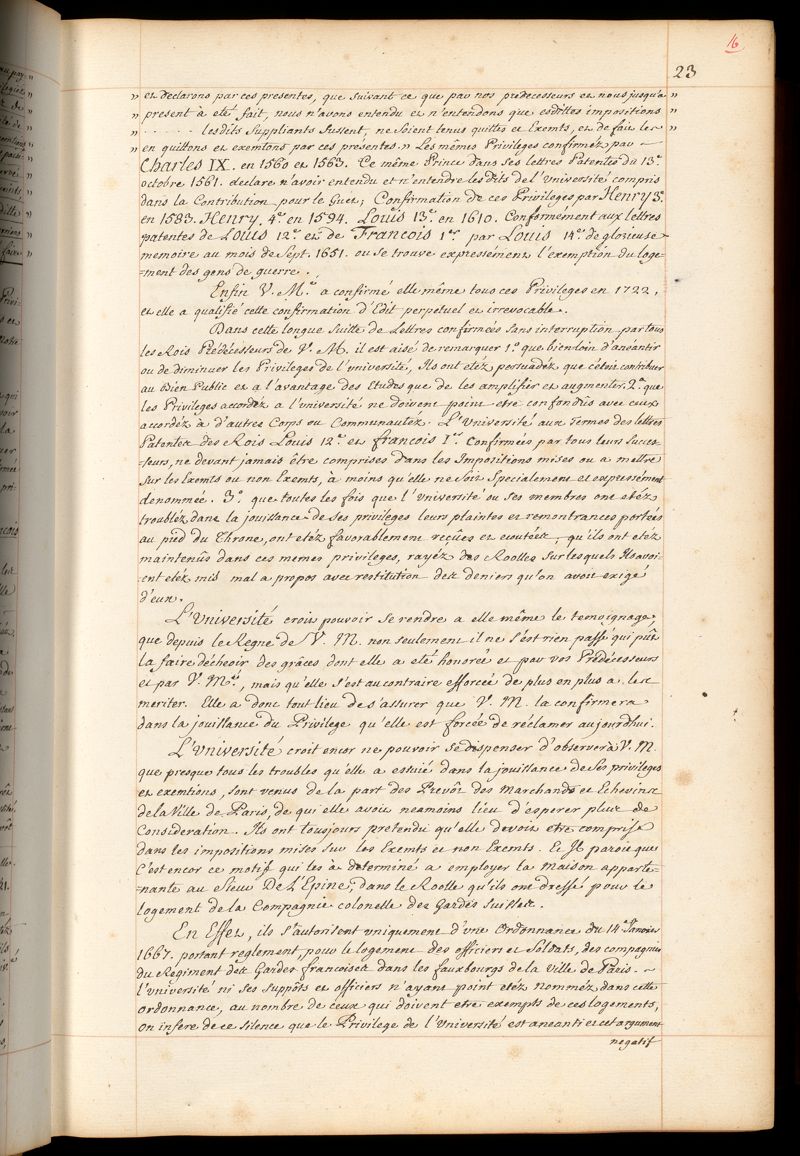 16
23
„ et declarons par ces presentes, que suivant ce que par nos predecesseurs et nous jusqu'a „
„ present à eté fait, nous n'avons entendu et n'entendons que esdittes impositions „
„ - - - - - - lesdits Suppliants fussent, ne soient tenus quittes et Exemts, et de fait les „
„ en quittons et exemtons par ces presentes. „ Les mêmes Privileges confirméz par ~
Charles IX. en 1560 et 1563. Ce même Prince dans ses lettres Patentes du 13.e
octobre 1561. declare n'avoir entendu et n'entendre les dits de l'Université compris
dans la Contribution pour le Guet; Confirmation de ces Privileges par Henry 3.e
en 1583. Henry, 4.e en 1594. Louis 13.e en 1610. Conformement aux lettres
patentes de Louis 12.e et de Francois 1.er par Louis 14.e de glorieuse
memoire au mois de Sept. 1651. ou se trouve expressément l'exemption du loge-
=ment des gens de guerre.
Enfin V. M.té a confirmé elle même tous ces Privileges en 1722,
et elle a qualifié cette confirmation d'Edit perpetuel et irrevocable.
Dans cette longue suitte de Lettres confirmées sans interruption par tous
les Rois Prédécesseurs de V. M. il est aisé de remarquer 1.o que bien loin d'anéantir
ou de diminuer les Privileges de l'université, Ils ont etéz persuadéz que c'etoit contribuer
au Bien Public et a l'avantage des Etudes que de les amplifier et augmenter. 2.o que
les Privileges accordéz a l'université ne doivent point etre confondus avec ceux
accordéz à d'autres Corps ou Communautéz. L'Université aux Termes des lettres
Patentes des Rois Louis 12.e et francois I.er Confirmées par tous leurs Succes-
=seurs, ne devant jamais être comprises dans les Impositions mises ou a mettre
sur les Exemts ou non Exemts, à moins qu'elle ne soit Specialement et expressément
dénommée. 3.o que toutes les fois que l'Université ou ses membres ont etéz
troubléz dans la jouissance de ses privileges leurs plaintes et remontrances portées
au pied du Throne, ont etéz favorablement reçües et ecoutées, qu'ils ont etéz
maintenûs dans ces memes privileges, rayéz des Roolles sur lesquels Ils avoi-
ent etéz mis mal a propos avec restitution des deniers qu'on avoit exigé
d'eux.
L'Université croit pouvoir se rendre a elle même le temoignage,
que depuis le Regne de V. M. non seulement il ne s'est rien passé qui pût
la faire décheoir des grâces dont elle a eté honorée et par vos Prédécesseurs
et par V. M.té, mais qu'elle s'est au contraire efforcée de plus en plus a les
meriter. Elle a donc tout lieu de s'assurer que V. M. la confirmera
dans la jouissance du Privilege qu'elle est forcée de réclamer aujourdhui.
L'Université croit encor ne pouvoir se dispenser d'observer à V. M.
que presque tous les troubles qu'elle a essuié dans la jouissance de ses privileges
et exemtions, sont venus de la part des Prevôt des Marchands et Echevins
de la Ville de Paris, de qui elle avoit neamoins lieu d'esperer plus de
Consideration. Ils ont tousjours pretendu qu'elle devoit etre comprise
dans les impositions mises sur les Exemts et non Exemts. Et Il paroit que
C'est encor ce motif qui les à determiné a employer la maison apparte-
=nante au Sieur De L'Epine, dans le Roolle qu'ils ont dressé pour le
logement de la Compagnie colonelle des Gardes Suisses.
En Effet, ils s'autorisent uniquement d'une ordonnance du 14.e Janvier
1667. portant reglement, pour le logement des officiers et Soldats, des compagnies
du Regiment des Gardes francoises dans les fauxbourgs de la Ville de Paris. ~
l'université ni ses suppôts et officiers n'ayant point etéz nommés dans cette
ordonnance, au nombre de ceux qui doivent etre exempts de ces logements,
on infere de ce silence que le Privilege de l'Université est aneanti et cet argument
negatif